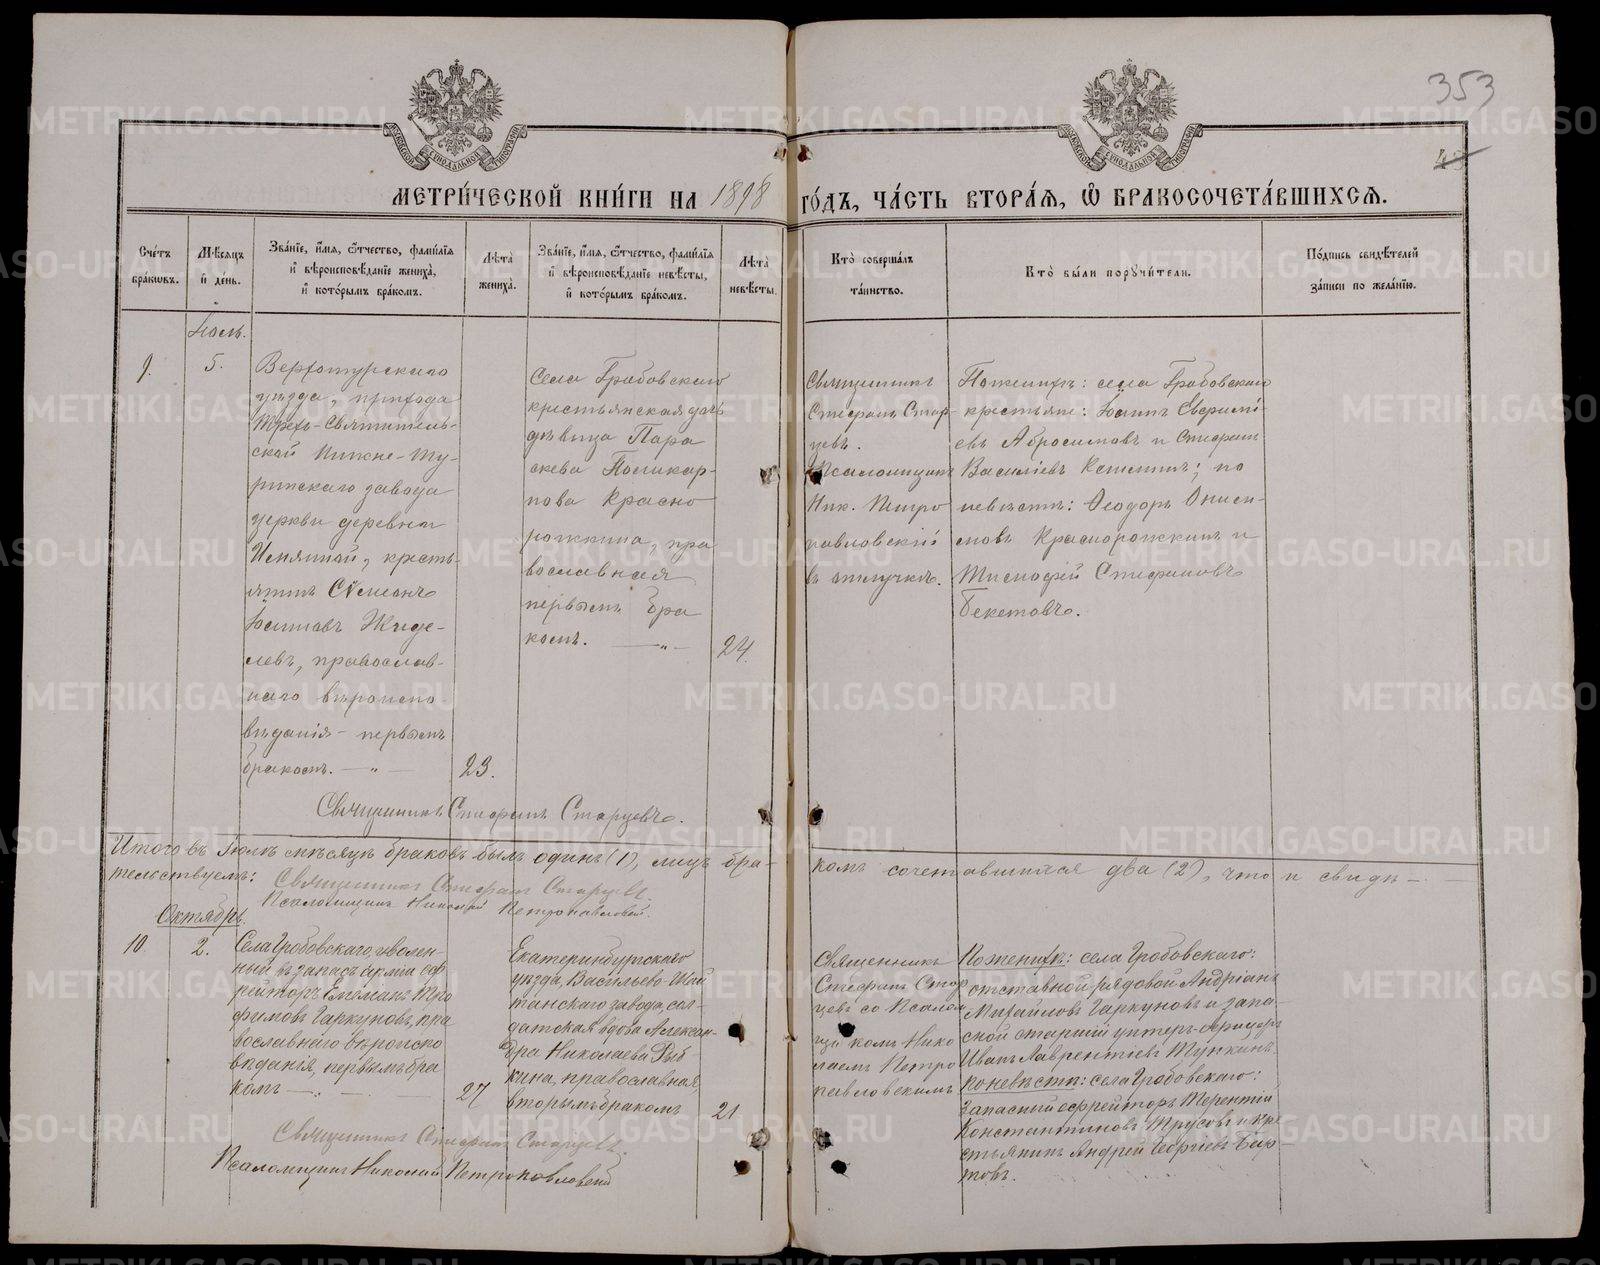 353
43
МЕТРИ́ЧЕСКОЙ КНИ́ГИ НА 1898 ГО́ДЪ, ЧА́СТЬ ВТОРА́Я, Ѿ БРАКОСОЧЕТА́ВШИХСЯ.
Сче́тъ бра́ковъ.
Мѣ́сяцъ и де́нь.
Зва́нїе, и́мя, ѻ҆́тчество, фами́лїя и҆ вѣроисповѣ́данїе жениха̀, и҆ кото́рымъ бра́комъ.
Лѣ́та жениха̀.
Зва́нїе, и́мя, ѻ҆́тчество, фами́лїя и҆ вѣроисповѣ́данїе невѣ́сты, и҆ кото́рымъ бра́комъ.
Лѣ́та невѣ́сты.
Кто̀ соверша́лъ та́инство.
Кто̀ бы́ли поручи́тели.
По́дпись свидѣ́телей за́писи по жела́нїю.
Іюль.
9.
5.
Верхотурскаго
уѣзда, прихода
Трехъ-Святитель-
ской Нижне-Ту-
ринскаго завода
церкви деревни
крестья-
нинъ Сѵмеонъ
Іоанновъ Жиде-
левъ, православ-
наго вѣроиспо
вѣданія - первымъ
бракомъ.
23.
Села Гробовскаго
крестьянская дочь
дѣвица Пара
скева Поликар-
пова Красно
рожкина, пра
вославная
первымъ бра
комъ.
24.
Священникъ
Стефанъ Стар-
цевъ.
Псаломщикъ
Ник. Петро
павловскій
въ отлучкѣ.
По женихѣ: села Гробовскаго
крестьяне: Іоаннъ
евъ Абросимовъ и Стефанъ
Василіевъ по
невѣстѣ: Ѳеодоръ Ониси-
мовъ Краснорожкинъ и
Тимофей Стефановъ
Бекетовъ.
Священникъ Стефанъ Старцевъ.
Итого въ Іюлѣ мѣсяцѣ браковъ былъ одинъ (1), лицъ бра-
комъ сочетавшихся два (2), что и свидѣ-
тельствуемъ: Священникъ Стефанъ Старцевъ.
Псаломщикъ Николай Петропавловскій.
Октябрь.
10
2.
Села Гробовскаго, уволен-
ный въ запасъ арміи еф
рейторъ Емеліанъ Тро
фимовъ Гаркуновъ, пра
вославнаго вѣроиспо
вѣданія, первымъ бра
комъ
27
Екатеринбургскаго
уѣзда, Васильево-Шай
танскаго завода, сол-
датская вдова Алексан-
дра Николаева Рыб
кина, православная,
вторымъ бракомъ
21
Священникъ
Стефанъ Стар
цевъ со Псалом
щикомъ Нико
лаемъ Петро
павловскимъ
По женихѣ: села Гробовскаго:
отставной рядовой Андріанъ
Михайловъ Гаркуновъ и запа-
сной старшій унтеръ-офицеръ
Иванъ Лаврентіевъ Тункинъ.
по невѣстѣ: села Гробовскаго:
запасный ефрейторъ Терентій
Константиновъ Трусовъ и кре
стьянинъ Андрей Георгіевъ Бар-
товъ.
Священникъ Стефанъ Старцевъ.
Псаломщикъ Николай Петропавловскій
METRIKI.GASO-URAL.RU